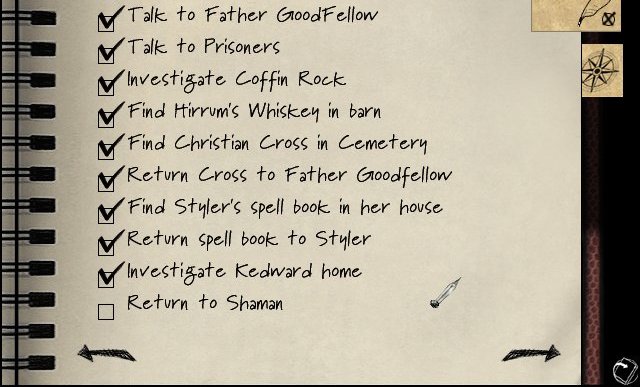 Talk to Father GoodFellow
Talk to Prisoners
Investigate Coffin Rock
Find Hirrum's Whiskey in barn
Find Christian Cross in Cemetery
Return Cross to Father Goodfellow
Find Styler's spell book in her house
Return spell book to Styler
Investigate Kedward home
Return to Shaman